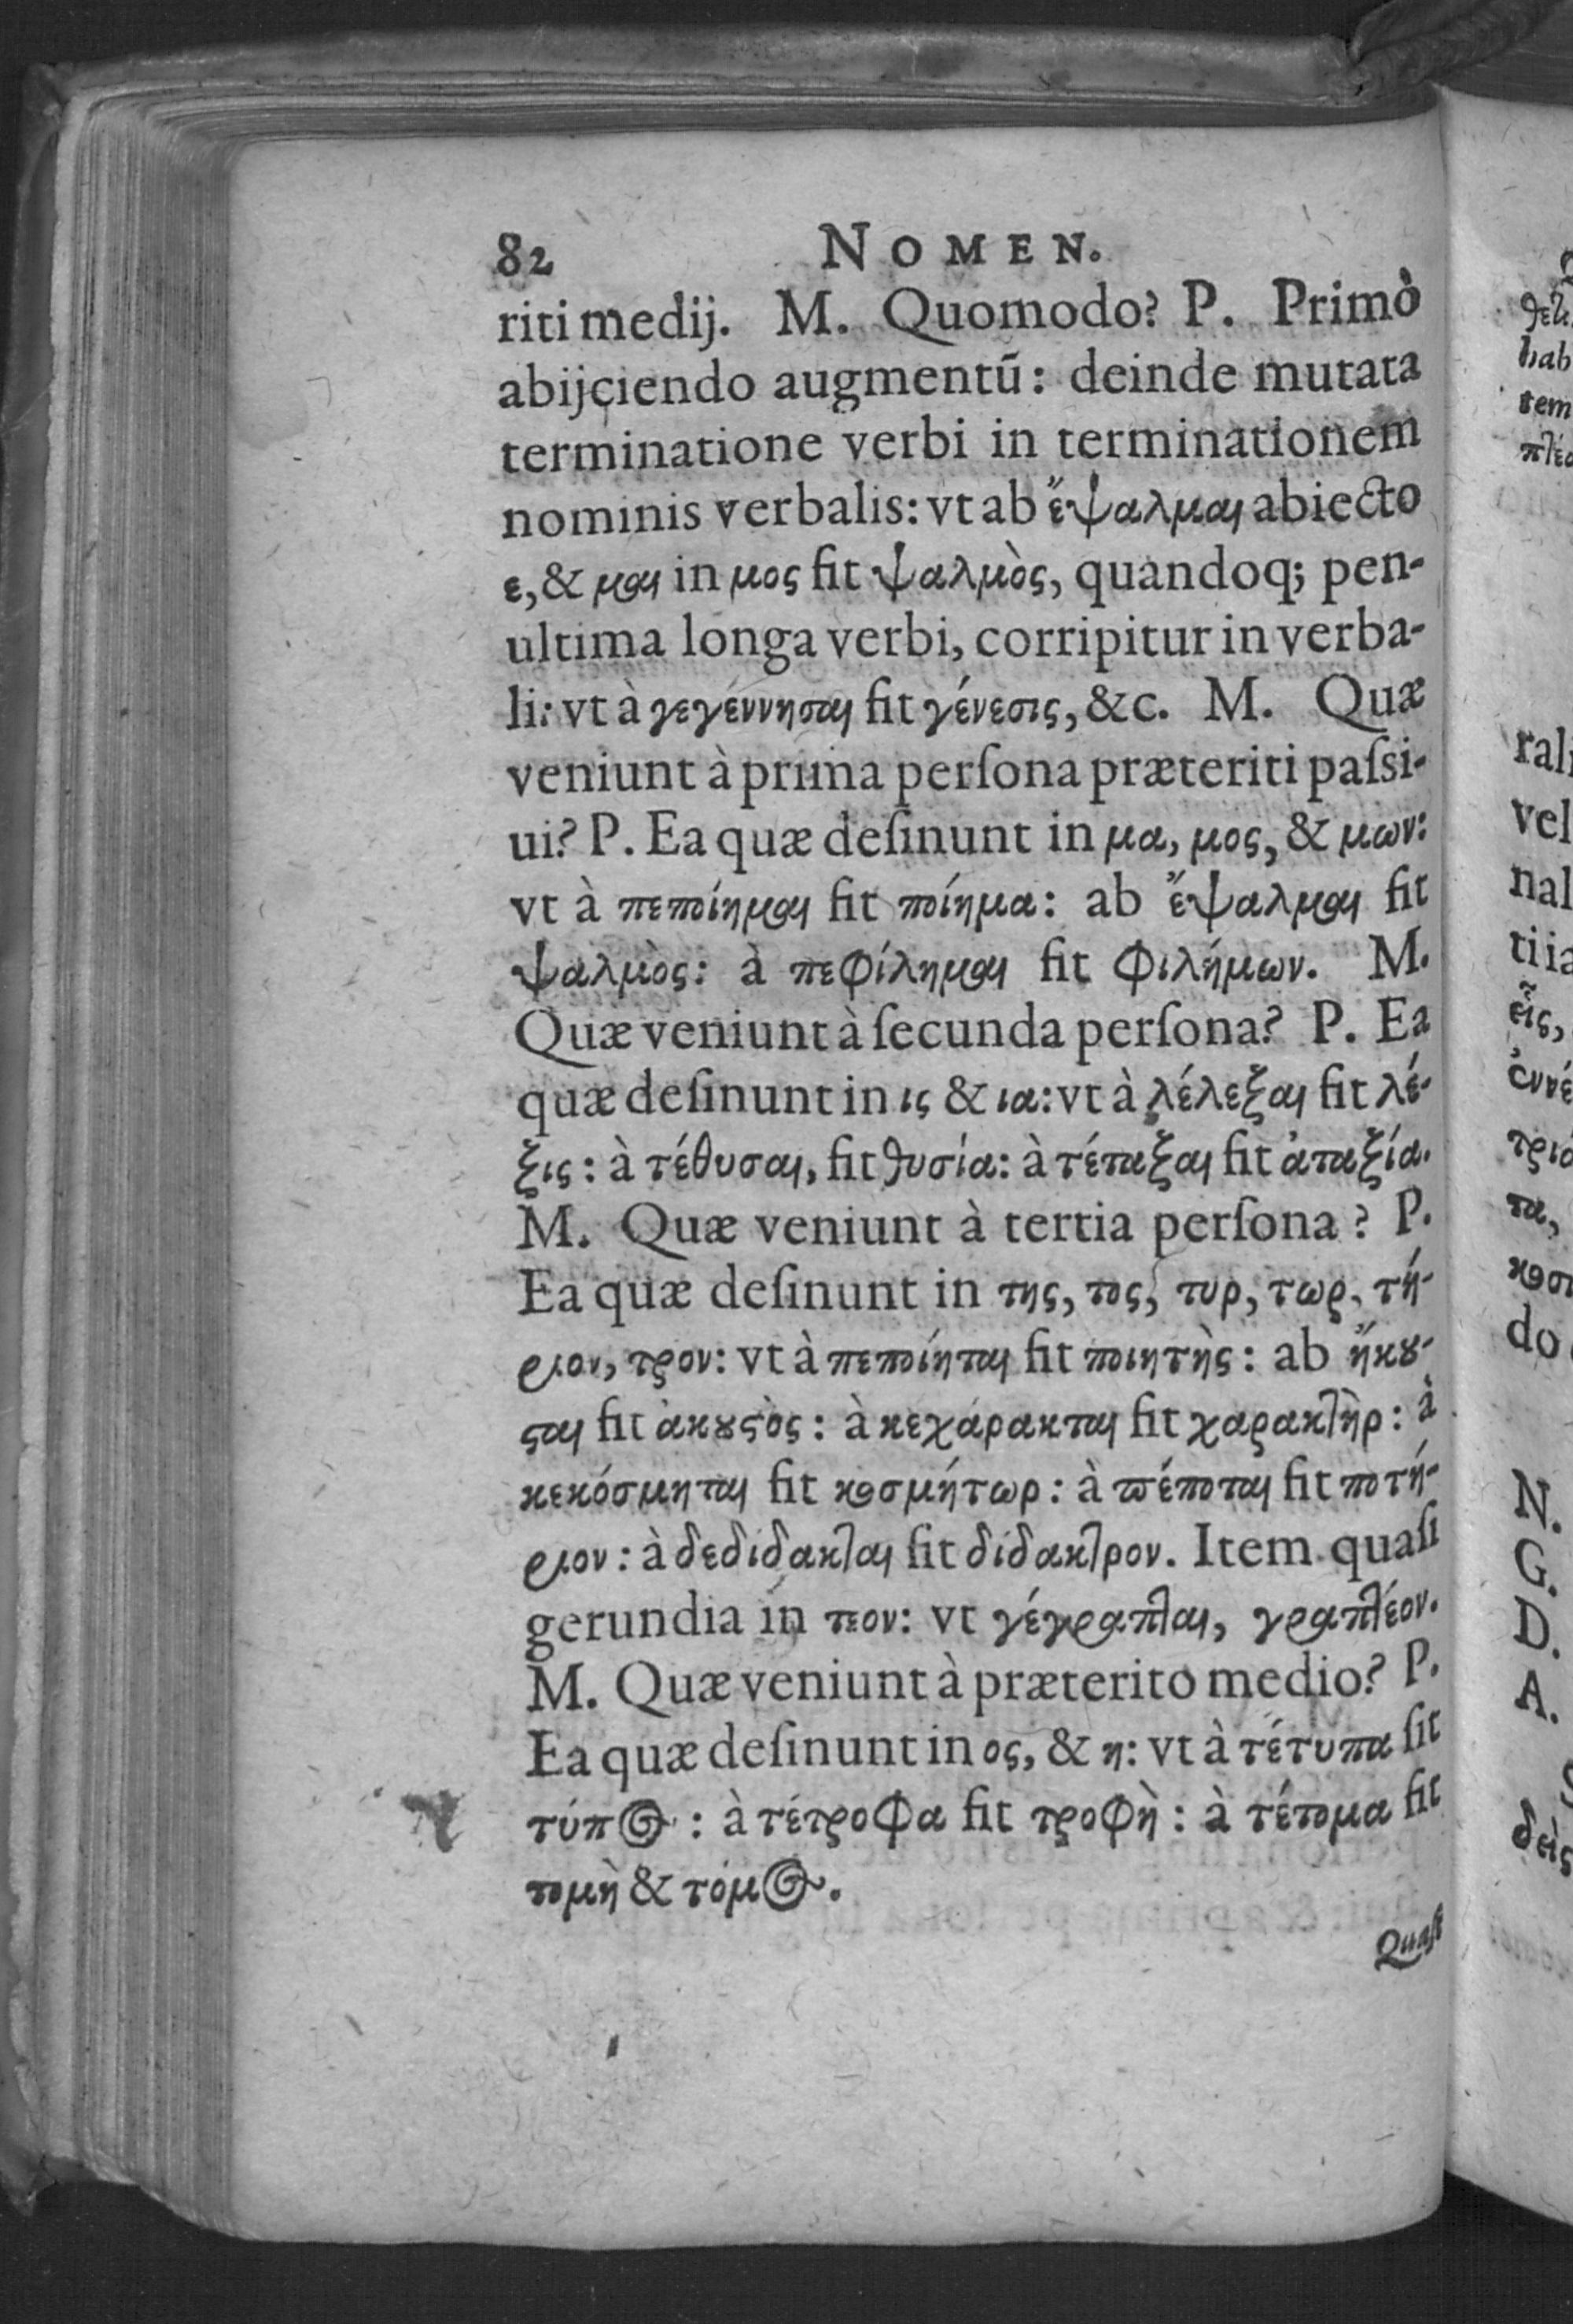 82 NOMEN.
riti medij. M. Quomodo? P. Primò
abijciendo augmentũ: deinde mutata
terminatione verbi in terminationem
nominis verbalis: vt ab ἔψαλμαι abiecto
ε, & μαι in μος fit ψαλμὸς, quandoq; pen-
ultima longa verbi, corripitur in verba-
li: vt à γεγέννησαι fit γένεσις, &c. M. Quæ
veniunt à prima perſona præteriti paſsi-
ui? P. Ea quæ deſinunt in μα, μος, & μων:
vt à πεποίημαι fit ποίημα: ab ἔψαλμαι fit
ψαλμὸς: à πεφίλημαι fit φιλήμων. M.
Quæ veniunt à ſecunda perſona? P. Ea
quæ deſinunt in ις & ια: vt à λέλεξαι fit λέ-
ξις: à τέθυσαι, fit θυσία: à τέταξαι fit ἀταξία.
M. Quæ veniunt à tertia perſona? P.
Ea quæ deſinunt in της, τος, τυρ, τωρ, τή-
ριον, τρον: vt à πεποίηται fit ποιητὴς: ab ἤκȣ-
ϛαι fit ἀκȣϛὸς: à κεχάρακται fit χαρακτὴρ: à
κεκόσμηται fit κοσμήτωρ: à πέποται fit ποτή-
ριον: à δεδίδακται fit δίδακτρον. Item quaſi
gerundia in τεον: vt γέγραπται, γραπτέον.
M. Quæ veniunt à præterito medio? P.
Ea quæ deſinunt in ος, & η: vt à τέτυπα fit
τύπος: à τέτροφα fit τροφὴ: à τέτομα fit
τομὴ & τόμος.
Quaſt
θελ
hab
tem
πλέο
rali
vel
nal
ti ia
εἷς,
ἐννέ
τριά
τα,
κοσ
do
N.
G.
D.
A.
δεὶς